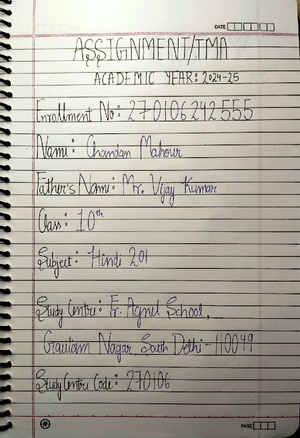 DATE
ASSIGNMENT/TMA
ACADEMIC YEAR: 2024-25
Enrollment No: 270106242555
Name: Chandan Mahour
Father's Name: Mr. Vijay Kumar
Class: 10th
Subject: Hindi 201
Study Centre: Fr. Agnel School,
Gautam Nagar, South Delhi - 110049
Study Centre Code: 270106
PAGE